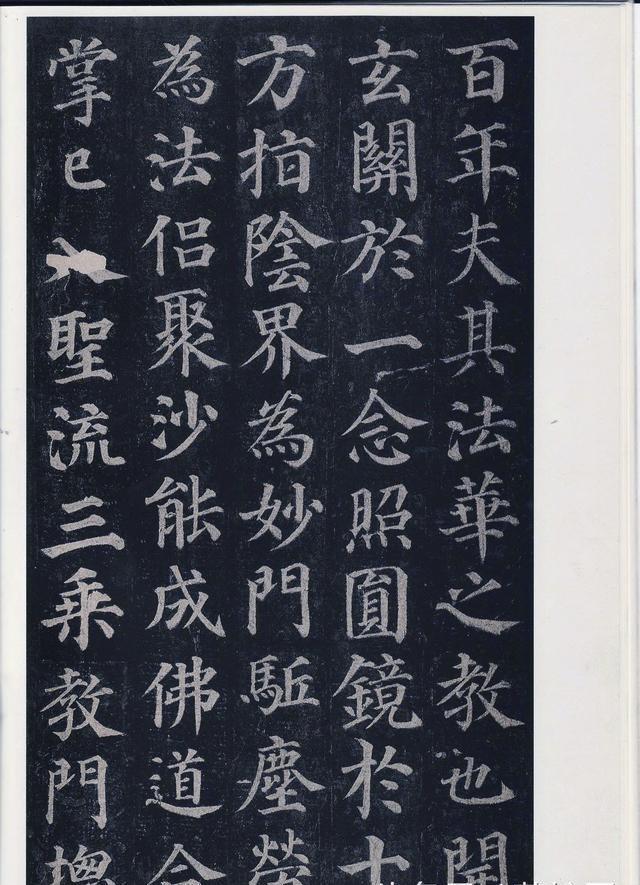 百年夫其法華之教也開
玄關於一念照圓鏡於十
方指陰界為妙門駈塵勞
為法侶聚沙能成佛道合
掌已聖流三乘教門